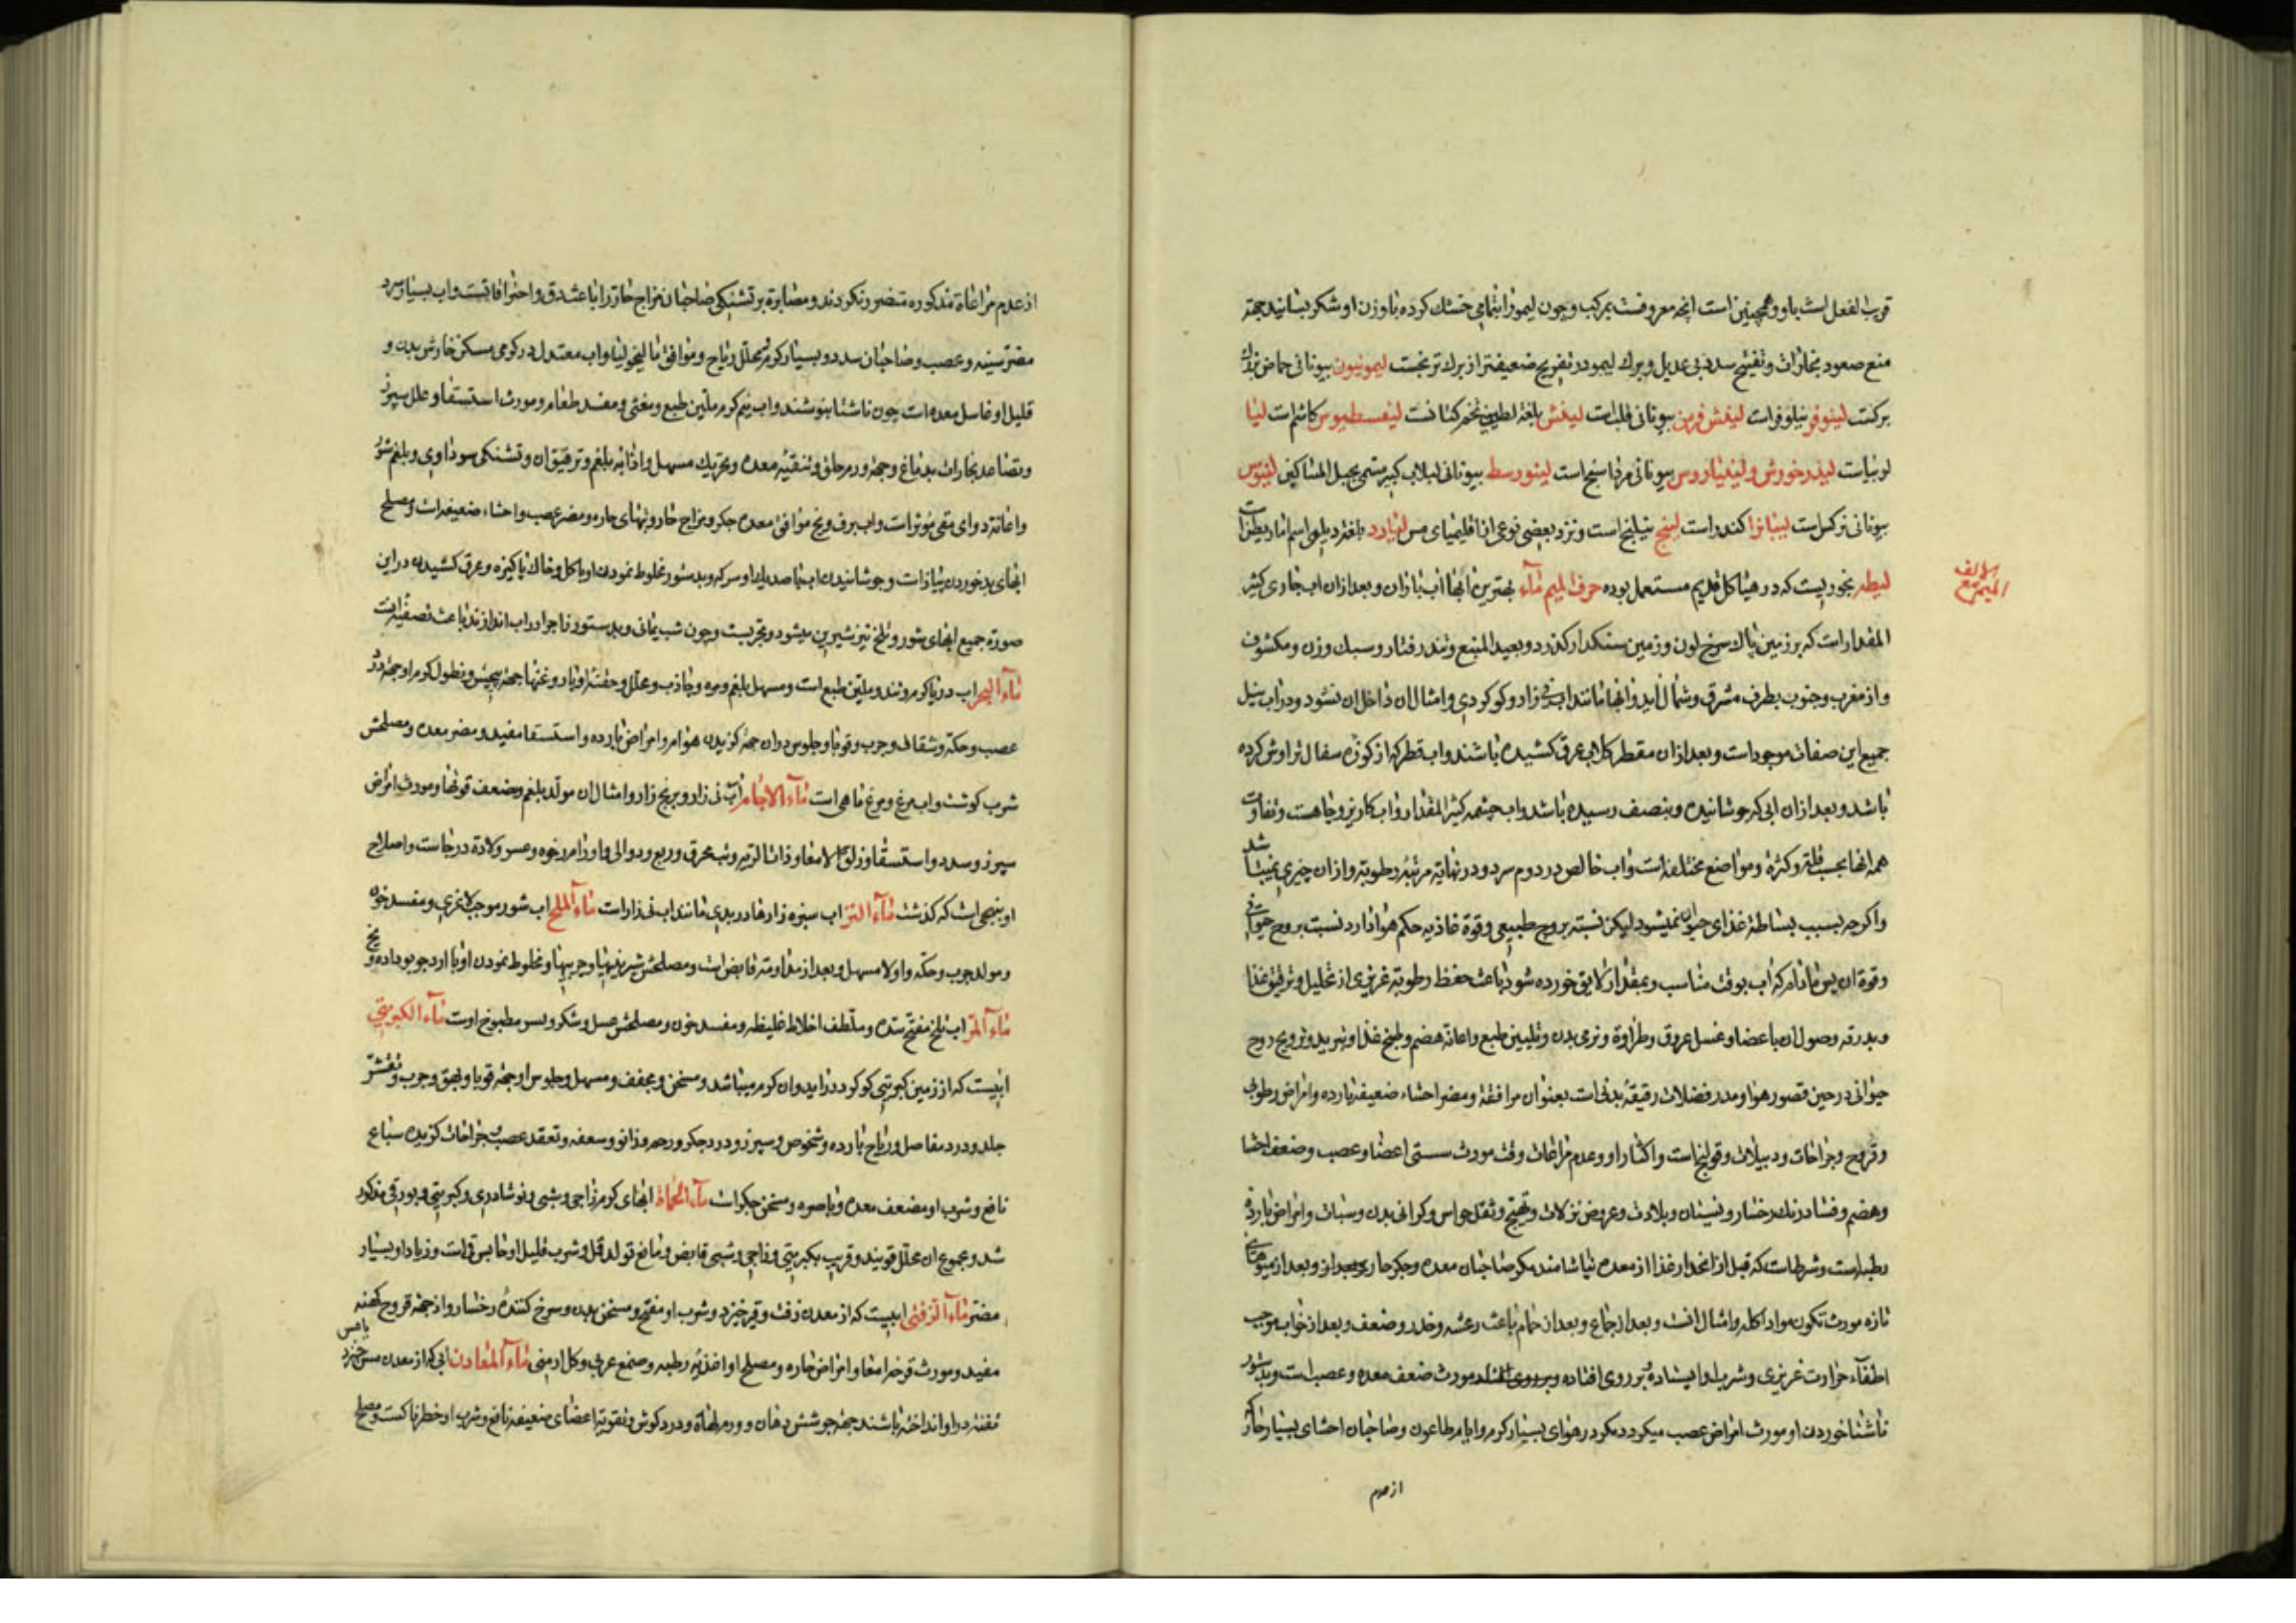 قریب الفعل است باو و همچنین است انچه معروفست بمرکب و چون لیمو را بتمامی خشک کرده با وزن او شکر بسایند جهة
منع صعود بخارات و تفتیح سدد بی عدیل و برک لیمو در تفریح ضعیفتر از برک ترنجست لیمونیون بیونانی حماض
برکست لینوفر نیلوفر است بیونانی قلب است لیغش بلغة تخم کتانست کاشم است لینا
لوبیاست بیونانی مرداسنج است بیونانی لبلاب کبیر مسمی بحبل المساکین
بیونانی نرکس است کندر است لینج نیلنج است و نزد بعضی نوعی از اقلیمیای مس بلغة دیلمی اسم
لیطه بخوریست که در هیاکل قدیم مستعمل بوده حرف المیم مآء بهترین ابها اب باران و بعد از ان اب جاری کثیر
المقدار است که بر زمین پاک سرخ لون و زمین سنکدار کذرد و بعید المنبع و تند رفتار و سبک وزن و مکشوف
و از مغرب و جنوب بطرف مشرق و شمال اید و ابها مانند اب نی زار و کوکردی و امثال ان داخل ان نشود و در اب نیل
جمیع این صفات موجود است و بعد از ان مقطر که ابی عرق کشیده باشند و اب قطر که از کوزه سفال تراوش کرده
باشد و بعد از ان ابی که جوشانیده و بنصف رسیده باشد و اب چشمه کثیر المقدار و اب کاریز و چاهست و تفاوت
همه انها بحسب قلة و کثرة و مواضع مختلفه است و اب خالص در دوم سرد و در نهایة مرتبۀ رطوبة و از ان چیزی نمیباشد
و اکرچه بسبب بساطة غذای حیوان نمیشود لیکن نسبة بروح طبیعی و قوة غاذیه حکم هوا دارد نسبت بروح حیوانی
و قوة ان پس مادام که اب بوقت مناسب و بمقدار لایق خورده شود باعث حفظ رطوبة غریزی از تحلیل و ترقیق غذا
و بدرقه وصول ان باعضا و غسل عروق و طراوة و نرمی بدن و تلیین طبع و اعانة هضم و طبخ غذا و تبرید و ترویح روح
حیوانی در حین قصور هوا و مدر فضلات رقیقۀ بدنی است بعنوان مرافقة و مضر احشاء ضعیفه بارده و امراض رطوبی
و قروح و جراحات و دبیلات و قولنجهاست و اکثار او و عدم مراعات وقت مورث سستی اعضا و عصب و ضعف احشا
و هضم و فساد رنک رخسار و نسیان و بلادت و عروض نزلات و تهیج و ثقل حواس و کرانی بدن و سبات و امراض بارده
رطبه است و شرط است که قبل از انحدار غذا از معده نیاشامند مکر صاحبان معده و جکر حار و بعد از میوهای
تازه مورث تکون مواد اکله و امثال انست و بعد از جماع و بعد از حمام باعث رعشه و خدر و ضعف و بعد از خواب موجب
اطفآء حرارت غریزی و شرب او ایستاده و بر روی افتاده مورث ضعف معده و عصب است و بدستور
ناشتا خوردن او مورث امراض عصب میکردد مکر در هوای بسیار کرم و ایام طاعون و صاحبان احشای بسیار حار که
از عدم
از عدم مراعاة مذکوره متضرر نکردند و مصابرة بر تشنکی صاحبان مزاج حار را باعث دق و احتراقات است و اب بسیار سرد
مضر سینه و عصب و صاحبان سدد و بسیار کرم محلل ریاح و موافق مالیخولیا و اب معتدل در کرمی مسکن خارش بدن و
قلیل او غاسل معده است چون ناشتا بنوشند و اب نیم کرم ملین طبع و مغثی و مفسد طعام و مورث استسقا و علل سپرز
و تصاعد بخارات بدماغ و جهة ورم حلق و تنقیۀ معده و تحریک مسهل و اذابه بلغم و ترقیق ان و تشنکی سوداوی و بلغم شور
و اعانة دوای مقی مؤثر است و اب برف و یخ موافق معده جکر و مزاج حار و تبهای حاره و مضر عصب و احشاء ضعیفه است و مصلح
ابهای بد خوردن پیاز است و جوشانیدن اب و سرکه و بدستور مخلوط نمودن او با کل و خاک پاکیزه و عرق کشیدن در این
صورة جمیع ابهای شور و تلخ نیز شیرین میشود و مجربست و چون شب یمانی و بدستور زاج در اب اندازند باعث تصفیۀ انست
مآء البحر اب دریا کرم و تند و ملین طبع است و مسهل بلغم و مره و جاذب و محلل و حقنۀ او با روغنها جهة پیچش و نطول کرم او جهة درد
عصب و حکه و شقاق و جرب و قوبا و جلوس در ان جهة کزیدن هوام و امراض بارده و استسقا مفید و مضر معده و مصلحش
شرب کوشت و اب مرغ و مرغ ماهی است مآء الاجام اب نی زار و برنج زار و امثال ان مولد بلغم و ضعف قوتها و مورث امراض
سپرز و سدد و استسقا و زلق الامعا و ذات الریه و تب محرق و ربع و دوالی و اورام رخوه و عسر ولادة در جاست و اصلاح
او بنهجی است که کذشت مآء النز اب سبزه زارها در بدی مانند اب نی زار است مآء الملح اب شور موجب لاغری و مفسد خون
و مولد جرب و حکه و اولا مسهل و بعد از مداومة قابض است و مصلحش شیرینیها و چربیها و مخلوط نمودن او با ارد جو بو داده و یخ
مآء المر اب تلخ مفتح سده و ملطف اخلاط غلیظه و مفسد خون و مصلحش عسل و شکر و پس مطبوخ اوست مآء الکبریتی
ابیست که از زمین کبریتی کوکرددار اید و ان کرم میباشد و مسخن و مجفف و مسهل و جلوس او جهة قوبا و بهق و جرب و تقشر
جلد و درد مفاصل و ریاح بارده و شخوص و سپرز و درد جکر و رحم و زانو و سعفه و تعقد عصب و جراحات کزیدن سباع
نافع و شرب او مضعف معده و باصره و مسخن جکر است مآء الحمأة ابهای کرم زاجی و شبی و نوشادری و کبریتی و بورقی مذکور
شد و مجموع ان محلل قویند و قریب بکبریتی و زاجی و شبی قابض و مانع تولد قمل و شرب قلیل او حابس قی است و زیاد او بسیار
مضر مآء الزفتی ابیست که از معدن زفت و قیر خیزد و شرب او مفتح و مسخن بدن و سرخ کنندۀ رخسار و از جهة قروح کهنه
مفید و مورث قرحه امعا و امراض حاره و مصلح او اغذیۀ رطبه و صمغ عربی و کل ارمنی مآء المعادن ابی که از معدن مس خیزد یا مس
تفته در او انداخته باشند جهة جوشش دهان و ورم لهاة و درد کوش و تقویة اعضای ضعیفه نافع و شرب او خطرناکست و مصلح